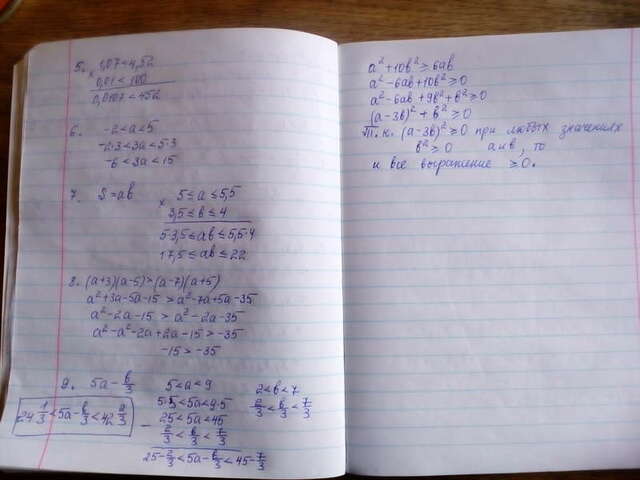 5. 1,07 < 4,52
× 0,01 < 100
0,0107 < 452
6. -2 < a < 5
-2·3 < 3a < 5·3
-6 < 3a < 15
7. S = ab
× 5 ≤ a ≤ 5,5
3,5 ≤ b ≤ 4
5·3,5 ≤ ab ≤ 5,5·4
17,5 ≤ ab ≤ 22
8. (a+3)(a-5) > (a-7)(a+5)
a²+3a-5a-15 > a²-7a+5a-35
a²-2a-15 > a²-2a-35
a²-a²-2a+2a-15 > -35
-15 > -35
9. 5a - b/3
5 < a < 9
5·5 < 5a < 9·5
25 < 5a < 45
- 2/3 < b/3 < 7/3
25 - 2/3 < 5a - b/3 < 45 - 7/3
2 < b < 7
2/3 < b/3 < 7/3
24 1/3 < 5a - b/3 < 42 2/3
a² + 10b² ≥ 6ab
a² - 6ab + 10b² ≥ 0
a² - 6ab + 9b² + b² ≥ 0
(a-3b)² + b² ≥ 0
Т.к. (a-3b)² ≥ 0 при любых значениях
b² ≥ 0 a и b, то
и все выражение ≥ 0.